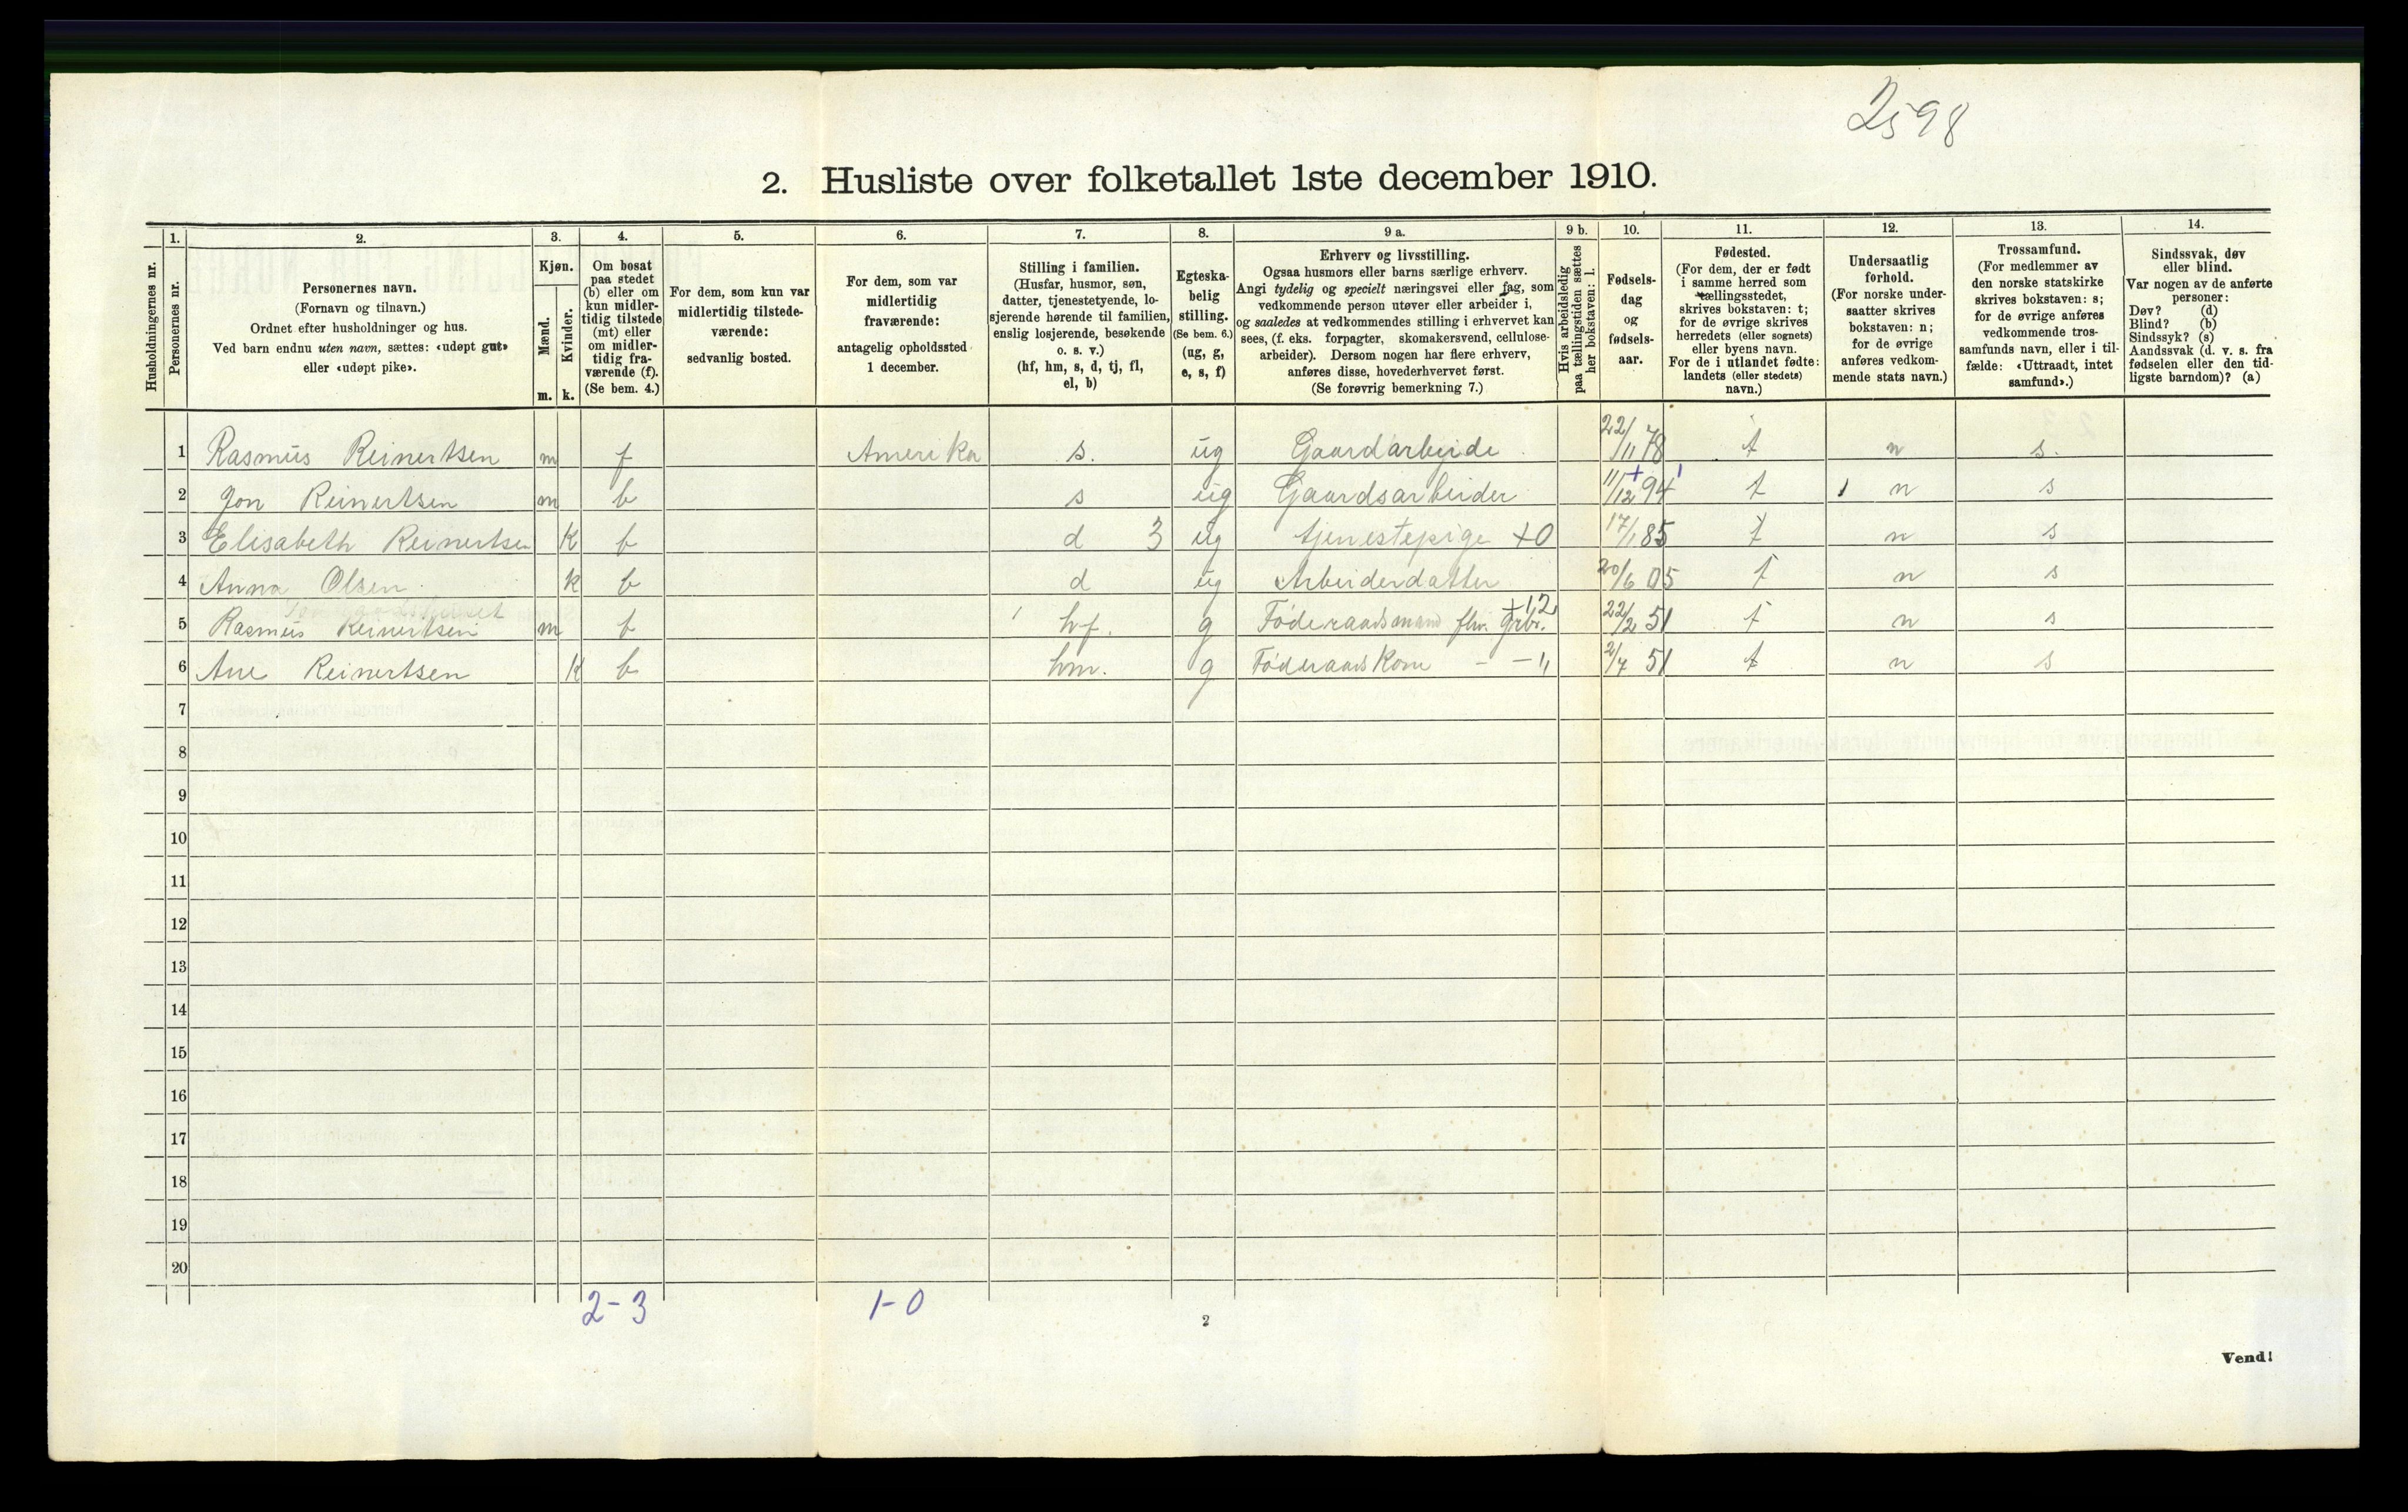 2598
2. Husliste over folketallet 1ste december 1910.
Husholdningernes nr.
1. Personernes nr.
2. Personernes navn.
(Fornavn og tilnavn.)
Ordnet efter husholdninger og hus.
Ved barn endnu uten navn, sættes: «udøpt gut»
eller «udøpt pike».
3. Kjøn.
Mænd. m.
Kvinder. k.
4. Om bosat
paa stedet
(b) eller om
kun midler-
tidig tilstede
(mt) eller
om midler-
tidig fra-
værende (f).
(Se bem. 4.)
5. For dem, som kun var
midlertidig tilstede-
værende:
sedvanlig bosted.
6. For dem, som var
midlertidig
fraværende:
antagelig opholdssted
1 december.
7. Stilling i familien.
(Husfar, husmor, søn,
datter, tjenestetyende, lo-
sjerende hørende til familien,
enslig losjerende, besøkende
o. s. v.)
(hf, hm, s, d, tj, fl,
el, b)
8. Egteska-
belig
stilling.
(Se bem. 6.)
(ug, g,
e, s, f)
9 a. Erhverv og livsstilling.
Ogsaa husmors eller barns særlige erhverv.
Angi tydelig og specielt næringsvei eller fag, som
vedkommende person utøver eller arbeider i,
og saaledes at vedkommendes stilling i erhvervet kan
sees, (f. eks. forpagter, skomakersvend, cellulose-
arbeider). Dersom nogen har flere erhverv,
anføres disse, hovederhvervet først.
(Se forøvrig bemerkning 7.)
9 b. Hvis arbeidsledig
paa tællingstiden sættes
her bokstaven: l.
10. Fødsels-
dag
og
fødsels-
aar.
11. Fødested.
(For dem, der er født
i samme herred som
tællingsstedet,
skrives bokstaven: t;
for de øvrige skrives
herredets (eller sognets)
eller byens navn.
For de i utlandet fødte:
landets (eller stedets)
navn.)
12. Undersaatlig
forhold.
(For norske under-
saatter skrives
bokstaven: n;
for de øvrige
anføres vedkom-
mende stats navn.)
13. Trossamfund.
(For medlemmer av
den norske statskirke
skrives bokstaven: s;
for de øvrige anføres
vedkommende tros-
samfunds navn, eller i til-
fælde: «Uttraadt, intet
samfund».)
14. Sindssvak, døv
eller blind.
Var nogen av de anførte
personer:
Døv? (d)
Blind? (b)
Sindssyk? (s)
Aandssvak (d. v. s. fra
fødselen eller den tid-
ligste barndom)? (a)
1 Rasmus Reinertsen m f Amerika s. ug Gaardarbeide 22/11 78 t n s.
2 Jon Reinertsen m b s ug Gaardsarbeider 11/12 94 t 1 n s
3 Elisabeth Reinertsen K b d 3 ug tjenestepige +0 17/1 85 t n s
4 Anna Olsen k b d ug Arbeiderdatter 20/6 05 t n s
5 Rasmus Reinertsen m b 1 hf. g Føderaadsmand flw. grbr. +12 22/2 51 t n s
6 Ane Reinertsen K b hm. g FøderaadsKone - -„ 2/7 51 t n s
7
8
9
10
11
12
13
14
15
16
17
18
19
20
2-3 1-0
2
Vend!